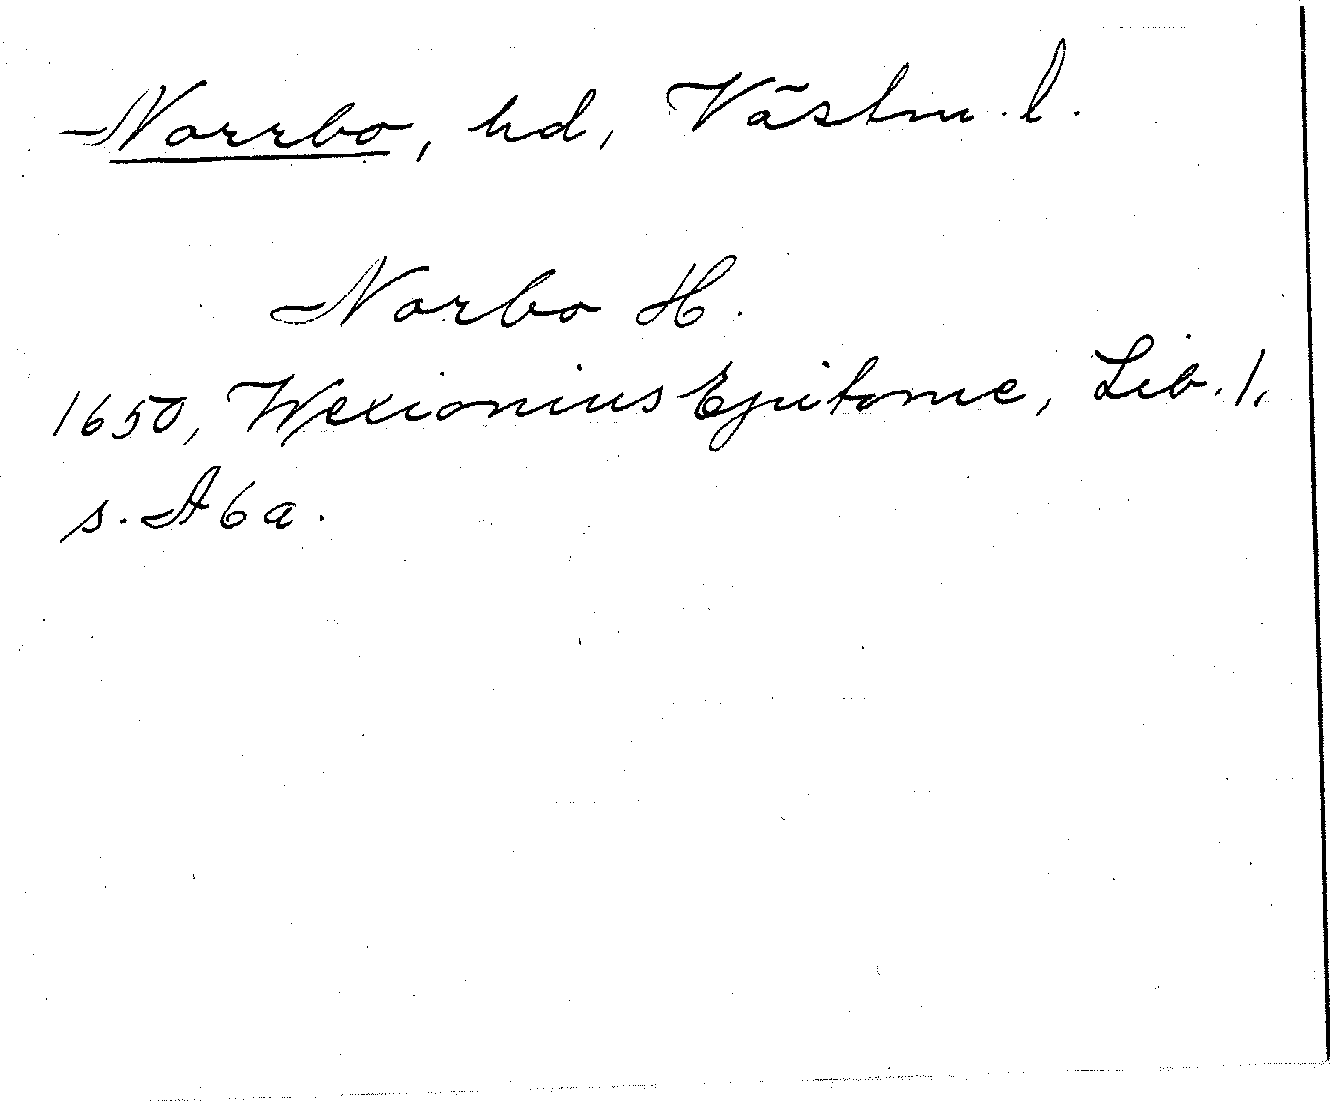 Norrbo, hd, Västm. l.
Norbo H.
1650, Wexionius Epitome, Lib. 1,
s. A 6 a.